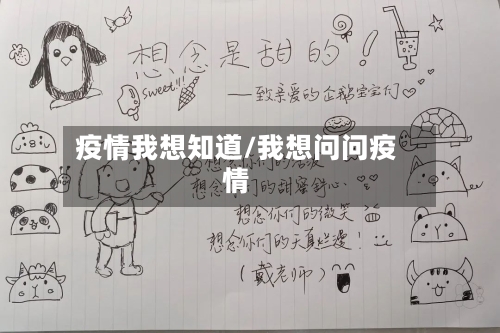 想念是甜的!
sweet!!!
——致亲爱的企鹅宝宝们
疫情我想知道/我想问问疫情
想念你们的甜蜜舒心
想念你们的微笑
想念你们的天真烂漫!
(戴老师)